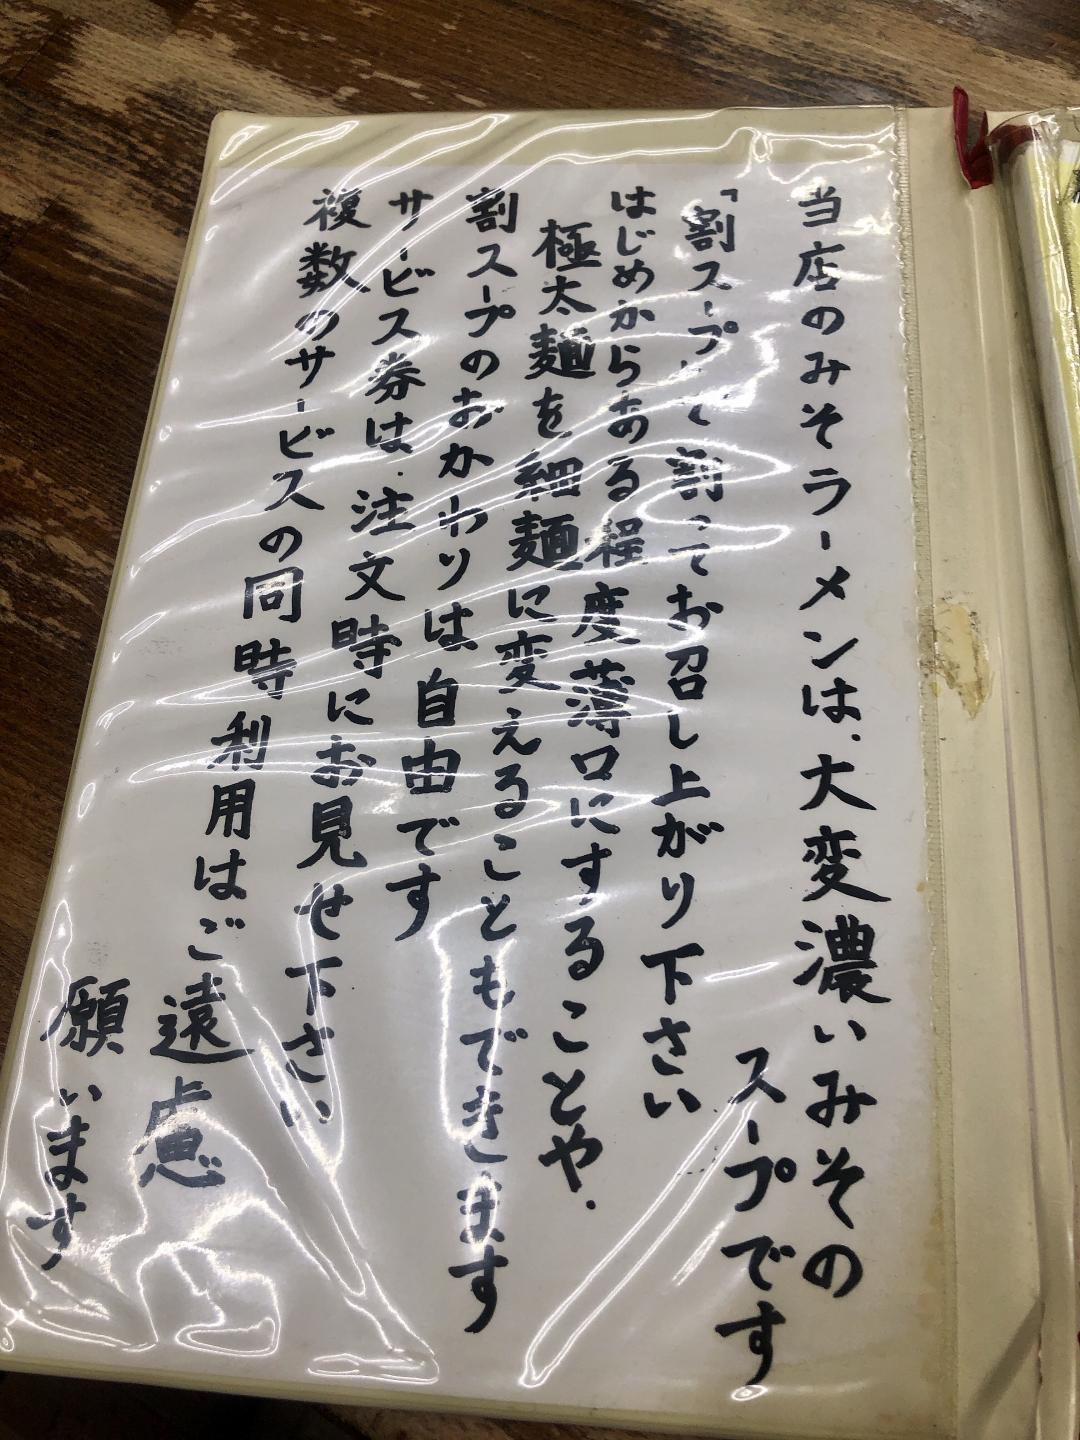 当店のみそラーメンは、大変濃いみその
スープです
「割スープ」で割ってお召し上がり下さい
はじめからある程度薄口にすることや、
極太麺を細麺に変えることもできます
割スープのおかわりは自由です
サービス券は、注文時にお見せ下さい
複数のサービスの同時利用はご遠慮
願います